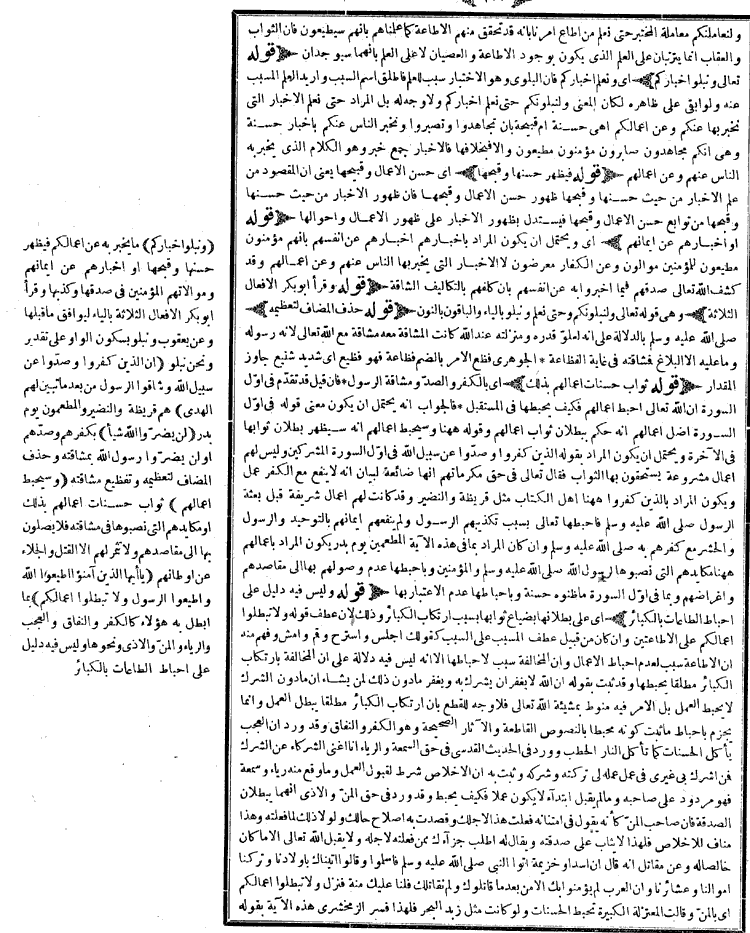 ولنعاملنكم معاملة المختبر حتى نعلم من اطاع امرنا بانه قد تحقق منهم الاطاعة كما علمناهم بانهم سيطيعون فان الثواب
والعقاب انما يترتبان على العلم الذى يكون بوجود الاطاعة والعصيان لا على العلم بانهما سيوجدان ﴿قوله
تعالى ونبلو اخباركم﴾ اى ونعلم اخباركم فان البلوى وهو الاختبار سبب للعلم فاطلق اسم السبب واريد العلم المسبب
عنه ولو ابقى على ظاهره لكان المعنى ولنبلونكم حتى نعلم اخباركم ولا وجه له بل المراد حتى نعلم الاخبار التى
نخبر بها عنكم وعن اعمالكم اهى حسنة ام قبيحة بان تجاهدوا وتصبروا ونخبر الناس عنكم باخبار حسنة
وهى انكم مجاهدون صابرون مؤمنون مطيعون والا فبخلافها فالاخبار جمع خبر وهو الكلام الذى يخبر به
الناس عنهم وعن اعمالهم ﴿قوله فيظهر حسنها وقبحها﴾ اى حسن الاعمال وقبحها يعنى ان المقصود من
علم الاخبار من حيث حسنها وقبحها ظهور حسن الاعمال وقبحها فان ظهور الاخبار من حيث حسنها
وقبحها من توابع حسن الاعمال وقبحها فيستدل بظهور الاخبار على ظهور الاعمال واحوالها ﴿قوله
او اخبارهم عن ايمانهم﴾ اى ويحتمل ان يكون المراد باخبارهم اخبارهم عن انفسهم بانهم مؤمنون
مطيعون للمؤمنين موالون وعن الكفار معرضون لا الاخبار التى يخبر بها الناس عنهم وعن اعمالهم وقد
كشف الله تعالى صدقهم فيما اخبروا به عن انفسهم بان كلفهم بالتكاليف الشاقة ﴿قوله وقرأ ابو بكر الافعال
الثلاثة﴾ وهى قوله تعالى ولنبلونكم وحتى نعلم ونبلو بالياء والباقون بالنون ﴿قوله حذف المضاف لتعظيمه﴾
صلى الله عليه وسلم بالدلالة على انه لعلو قدره ومنزلته عند الله كانت المشاقة معه مشاقة مع الله تعالى لانه رسوله
وما عليه الا البلاغ فمشاقته فى غاية الفظاعة * الجوهرى فظع الامر بالضم فظاعة فهو فظيع اى شديد شنيع جاوز
المقدار ﴿قوله ثواب حسنات اعمالهم بذلك﴾ اى بالكفر والصد ومشاقة الرسول * فان قيل قد تقدم فى اول
السورة ان الله تعالى احبط اعمالهم فكيف يحبطها فى المستقبل * فالجواب انه يحتمل ان يكون معنى قوله فى اول
السورة اضل اعمالهم انه حكم ببطلان ثواب اعمالهم وقوله ههنا وسيحبط اعمالهم انه سيظهر بطلان ثوابها
فى الآخرة ويحتمل ان يكون المراد بقوله الذين كفروا وصدوا عن سبيل الله فى اول السورة المشركين وليس لهم
اعمال مشروعة يستحقون بها الثواب فقال تعالى فى حق مكرماتهم انها ضائعة لبيان انه لا ينفع مع الكفر عمل
ويكون المراد بالذين كفروا ههنا اهل الكتاب مثل قريظة والنضير وقد كانت لهم اعمال شريفة قبل بعثة
الرسول صلى الله عليه وسلم فاحبطها تعالى بسبب تكذيبهم الرسول ولم ينفعهم ايمانهم بالتوحيد والرسول
والحشر مع كفرهم به صلى الله عليه وسلم وان كان المراد بما فى هذه الآية المطعمين يوم بدر يكون المراد باعمالهم
ههنا مكايدهم التى نصبوها لرسول الله صلى الله عليه وسلم والمؤمنين وباحباطها عدم وصولهم بها الى مقاصدهم
واغراضهم وبما فى اول السورة ما ظنوه حسنة وباحباطها عدم الاعتبار بها ﴿قوله وليس فيه دليل على
احباط الطاعات بالكبائر﴾ اى على بطلانها بضياع ثوابها بسبب ارتكاب الكبائر وذلك لان عطف قوله ولا تبطلوا
اعمالكم على الاطاعتين وان كان من قبيل عطف المسبب على السبب كقولك اجلس واسترح وقم وامش وفهم منه
ان الاطاعة سبب لعدم احباط الاعمال وان المخالفة سبب لاحباطها الا انه ليس فيه دلالة على ان المخالفة بارتكاب
الكبائر مطلقا يحبطها وقد ثبت بقوله ان الله لا يغفر ان يشرك به ويغفر ما دون ذلك لمن يشاء ان ما دون الشرك
لا يحبط العمل بل الامر فيه منوط بمشيئة الله تعالى فلا وجه للقطع بان ارتكاب الكبائر مطلقا يبطل العمل وانما
يجزم باحباط ما ثبت كونه محبطا بالنصوص القاطعة والآثار الصحيحة وهو الكفر والنفاق وقد ورد ان العجب
يأكل الحسنات كما تأكل النار الحطب وورد فى الحديث القدسى فى حق السمعة والرياء انا اغنى الشركاء عن الشرك
فمن اشرك بى غيرى فى عمل عمله لى تركته وشركه وثبت به ان الاخلاص شرط لقبول العمل وما وقع منه رياء وسمعة
فهو مردود على صاحبه وما لم يقبل ابتداء لا يكون عملا فكيف يحبط وقد ورد فى حق المن والاذى انهما يبطلان
الصدقة فان صاحب المن كأنه يقول فى امتنانه فعلت هذا لاجلك وقصدت به اصلاح حالك ولولا ذلك لما فعلته وهذا
مناف للاخلاص فلهذا لا يثاب على صدقته ويقال له اطلب جزاءك ممن فعلته لاجله ولا يقبل الله تعالى الا ما كان
خالصا له وعن مقاتل انه قال ان اسد او خزيمة اتوا النبى صلى الله عليه وسلم فاسلموا وقالوا اتيناك باولادنا وتركنا
اموالنا وعشائرنا وان العرب لم يؤمنوا بك الا من بعد ما قاتلوك ولم نقاتلك فلنا عليك منة فنزل ولا تبطلوا اعمالكم
اى بالمن وقالت المعتزلة الكبيرة تحبط الحسنات ولو كانت مثل زبد البحر فلهذا فسر الزمخشرى هذه الآية بقوله
(ونبلو اخباركم) ما يخبر به عن اعمالكم فيظهر
حسنها وقبحها او اخبارهم عن ايمانهم
وموالاتهم المؤمنين فى صدقها وكذبها وقرأ
ابو بكر الافعال الثلاثة بالياء ليوافق ما قبلها
وعن يعقوب ونبلو بسكون الواو على تقدير
ونحن نبلو (ان الذين كفروا وصدوا عن
سبيل الله وشاقوا الرسول من بعد ما تبين لهم
الهدى) هم قريظة والنضير والمطعمون يوم
بدر (لن يضروا الله شيأ) بكفرهم وصدهم
او لن يضروا رسول الله بمشاقته وحذف
المضاف لتعظيمه وتفظيع مشاقته (وسيحبط
اعمالهم) ثواب حسنات اعمالهم بذلك
او مكايدهم التى نصبوها فى مشاقته فلا يصلون
بها الى مقاصدهم ولا تثمر لهم الا القتل والجلاء
عن اوطانهم (يا ايها الذين آمنوا اطيعوا الله
واطيعوا الرسول ولا تبطلوا اعمالكم) بما
ابطل به هؤلاء كالكفر والنفاق والعجب
والرياء والمن والاذى ونحوها وليس فيه دليل
على احباط الطاعات بالكبائر